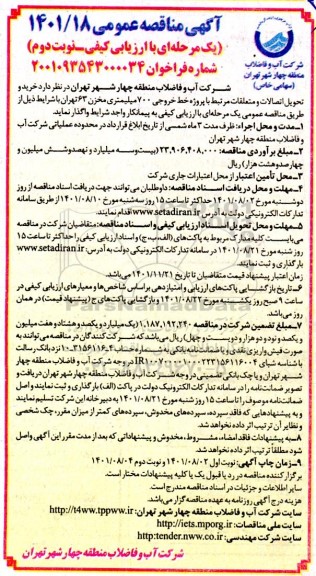 آگهی مناقصه عمومی ۱۴۰۱/۱۸
(یک مرحله‌ای با ارزیابی کیفی-نوبت دوم)
شماره فراخوان ۲۰۰۱۰۹۳۵۴۳۰۰۰۰۳۴
شرکت آب و فاضلاب
منطقه چهار شهر تهران
(سهامی خاص)
شرکت آب و فاضلاب منطقه چهار شهر تهران در نظر دارد خرید و
تحویل اتصالات و متعلقات مرتبط با پروژه خط خروجی ۷۰۰ میلیمتری مخزن ۶۳ تهران با شرایط ذیل از
طریق مناقصه عمومی یک مرحله‌ای با ارزیابی کیفی به پیمانکار واجد شرایط واگذار نماید.
۱-مدت و محل اجرا: ظرف مدت ۳ ماه شمسی از تاریخ ابلاغ قرارداد در محدوده عملیاتی شرکت آب
و فاضلاب منطقه چهار شهر تهران
۲-مبلغ برآوردی مناقصه: ۲۳,۹۰۶,۴۰۸,۰۰۰ (بیست‌وسه میلیارد و نهصدوشش میلیون و
چهارصدوهشت هزار) ریال
۳-محل تأمین اعتبار از محل اعتبارات جاری شرکت
۴-مهلت و محل دریافت اسناد مناقصه: داوطلبان می‌توانند جهت دریافت اسناد مناقصه از روز
دوشنبه مورخ ۱۴۰۱/۰۸/۰۲ حداکثر تا ساعت ۱۵ روز سه‌شنبه مورخ ۱۴۰۱/۰۸/۱۰ از طریق سامانه
تدارکات الکترونیکی دولت به آدرس www.setadiran.ir اقدام نمایند.
۵-مهلت و محل تحویل اسناد ارزیابی کیفی و اسناد مناقصه: متقاضیان شرکت در مناقصه
می‌بایست کلیه مدارک مربوط به پاکت‌های (الف، ب، ج) و اسناد ارزیابی کیفی را حداکثر تا ساعت ۱۵
روز شنبه مورخ ۱۴۰۱/۰۸/۲۱ در سامانه تدارکات الکترونیکی دولت به آدرس www.setadiran.ir
بارگذاری و ثبت نمایند.
زمان اعتبار پیشنهاد قیمت متقاضیان تا تاریخ ۱۴۰۱/۱۱/۲۱ می‌باشد.
۶-تاریخ بازگشایی پاکت‌های ارزیابی و امتیازدهی براساس شاخص‌ها و معیارهای ارزیابی کیفی در
ساعت ۹ صبح روز یکشنبه مورخ ۱۴۰۱/۰۸/۲۲ و بازگشایی پاکت‌های ج (پیشنهاد قیمت) در همان
روز می‌باشد.
۷-مبلغ تضمین شرکت در مناقصه ۱,۱۸۷,۱۹۲,۲۴۰ (یک میلیارد و یکصد و هشتاد و هفت میلیون
و یکصد و نود و دو هزار و دویست و چهل) ریال می‌باشد که شرکت‌کنندگان در مناقصه می‌توانند به
صورت فیش واریزی نقدی و یا ضمانت‌نامه بانکی
تهران و یا چک بانکی تضمینی در وجه شرکت آب و فاضلاب منطقه چهار شهر تهران دریافت و
تصویر ضمانت‌نامه را در سامانه تدارکات الکترونیک دولت در پاکت (الف) بارگذاری و ثبت نمایند و اصل
ضمانت‌نامه موصوف را تا ساعت ۱۵ روز شنبه مورخ ۱۴۰۱/۰۸/۲۱ به دبیرخانه این شرکت تسلیم نمایند
و به پیشنهادهایی که فاقد سپرده، سپرده‌های مخدوش، سپرده‌های کمتر از میزان مقرر، چک شخصی
و نظایر آن ترتیب اثر داده نخواهد شد.
۸-به پیشنهادات فاقد امضاء، مشروط، مخدوش و پیشنهاداتی که بعد از مدت مقرر این آگهی واصل
شود مطلقاً ترتیب اثر داده نخواهد شد.
۹-زمان چاپ آگهی: نوبت اول ۱۴۰۱/۰۸/۰۲ و نوبت دوم ۱۴۰۱/۰۸/۰۴
برگزارکننده مناقصه در رد یا قبول یک یا کلیه پیشنهادات مختار است.
سایر اطلاعات و جزئیات در اسناد مناقصه مندرج است.
هزینه درج آگهی روزنامه به عهده مناقصه‌گزار می‌باشد.
سایت شرکت آب و فاضلاب منطقه چهار شهر تهران: http://t4ww.tpww.ir
سایت ملی مناقصات: http://iets.mporg.ir
سایت شرکت مهندسی: http:tender.nww.co.ir
شرکت آب و فاضلاب منطقه چهار شهر تهران